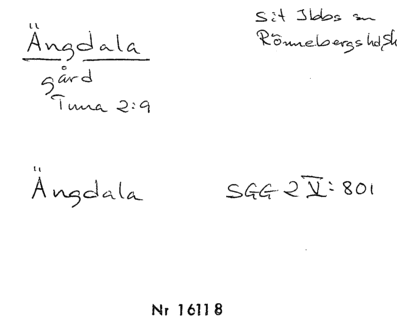 Ängdala
gård
Tuna 2:9
Sit Ibbs sn
Rönnebergs hd, Sk
Ängdala
SGG 2 V: 801
Nr 16118